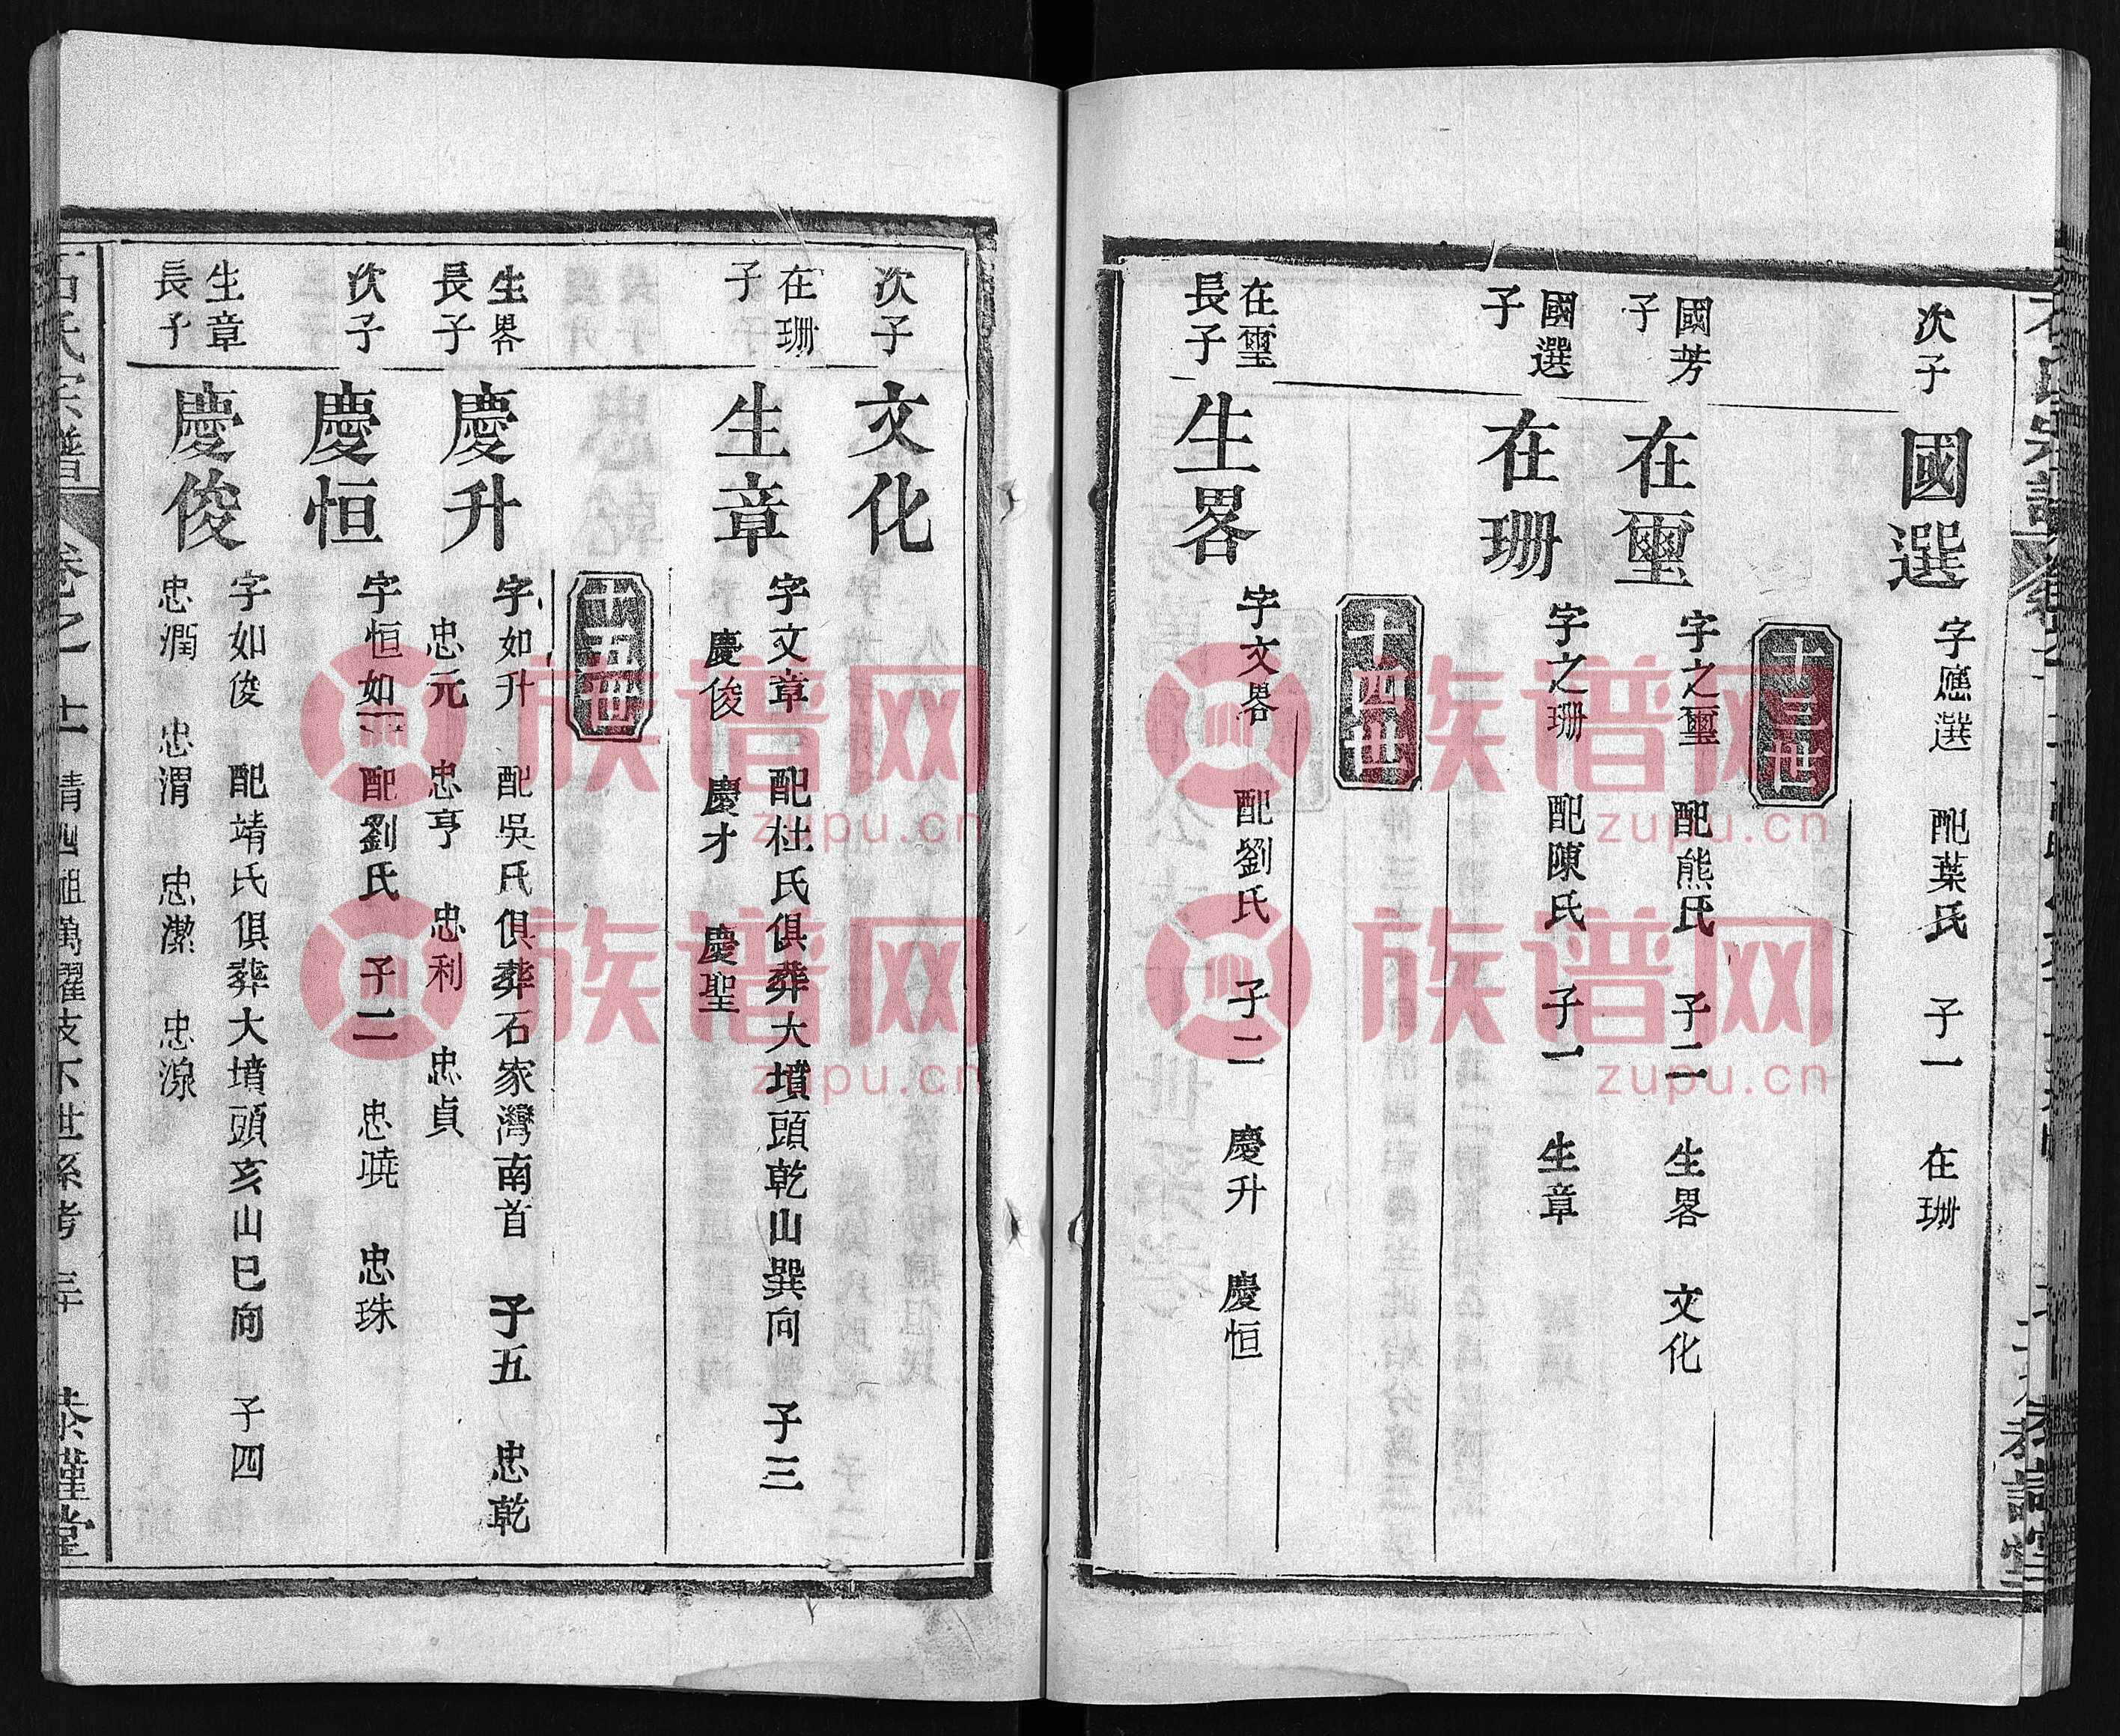 次子
國選
字應選　配葉氏　子一　在珊
十三世
國芳
子
在璽
字之璽　配熊氏　子二　生畧　文化
國選
子
在珊
字之珊　配陳氏　子一　生章
十四世
在璽
長子
生畧
字文畧　配劉氏　子二　慶升　慶恒
次子
文化
在珊
子
生章
字文章　配杜氏俱葬大墳頭乾山巽向　子三
慶俊　慶才　慶聖
十五世
生畧
長子
慶升
字如升　配吳氏俱葬石家灣南首　子五　忠乾
忠元　忠亨　忠利　忠貞
次子
慶恒
字恒如　配劉氏　子二　忠曉　忠珠
生章
長子
慶俊
字如俊　配靖氏俱葬大墳頭亥山巳向　子四
忠潤　忠渭　忠潔　忠湶
石氏宗譜
卷之
世系考
族谱网
zupu.cn
族谱网
zupu.cn
族谱网
zupu.cn
族谱网
zupu.cn